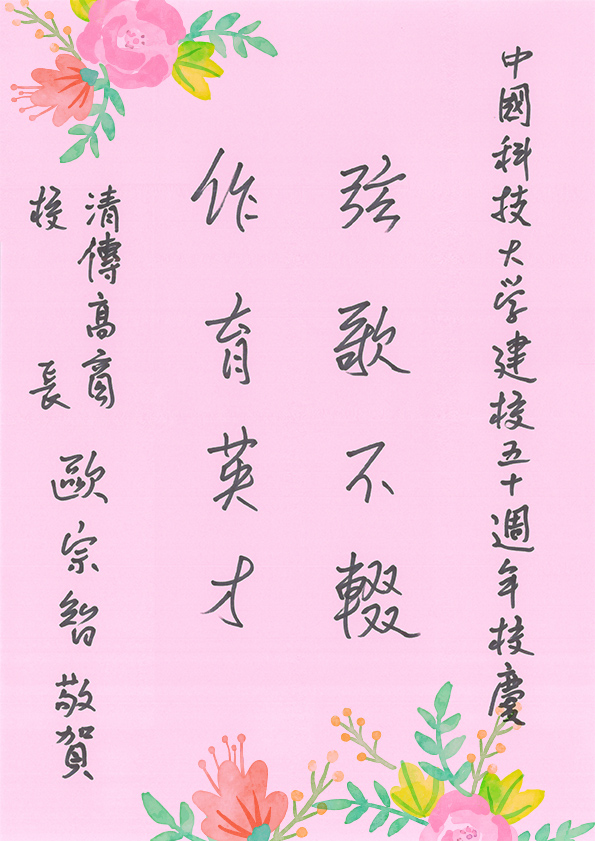 中國科技大学建校五十週年校慶
弦歌不輟
作育英才
清傳高商
校長
歐宗智敬賀